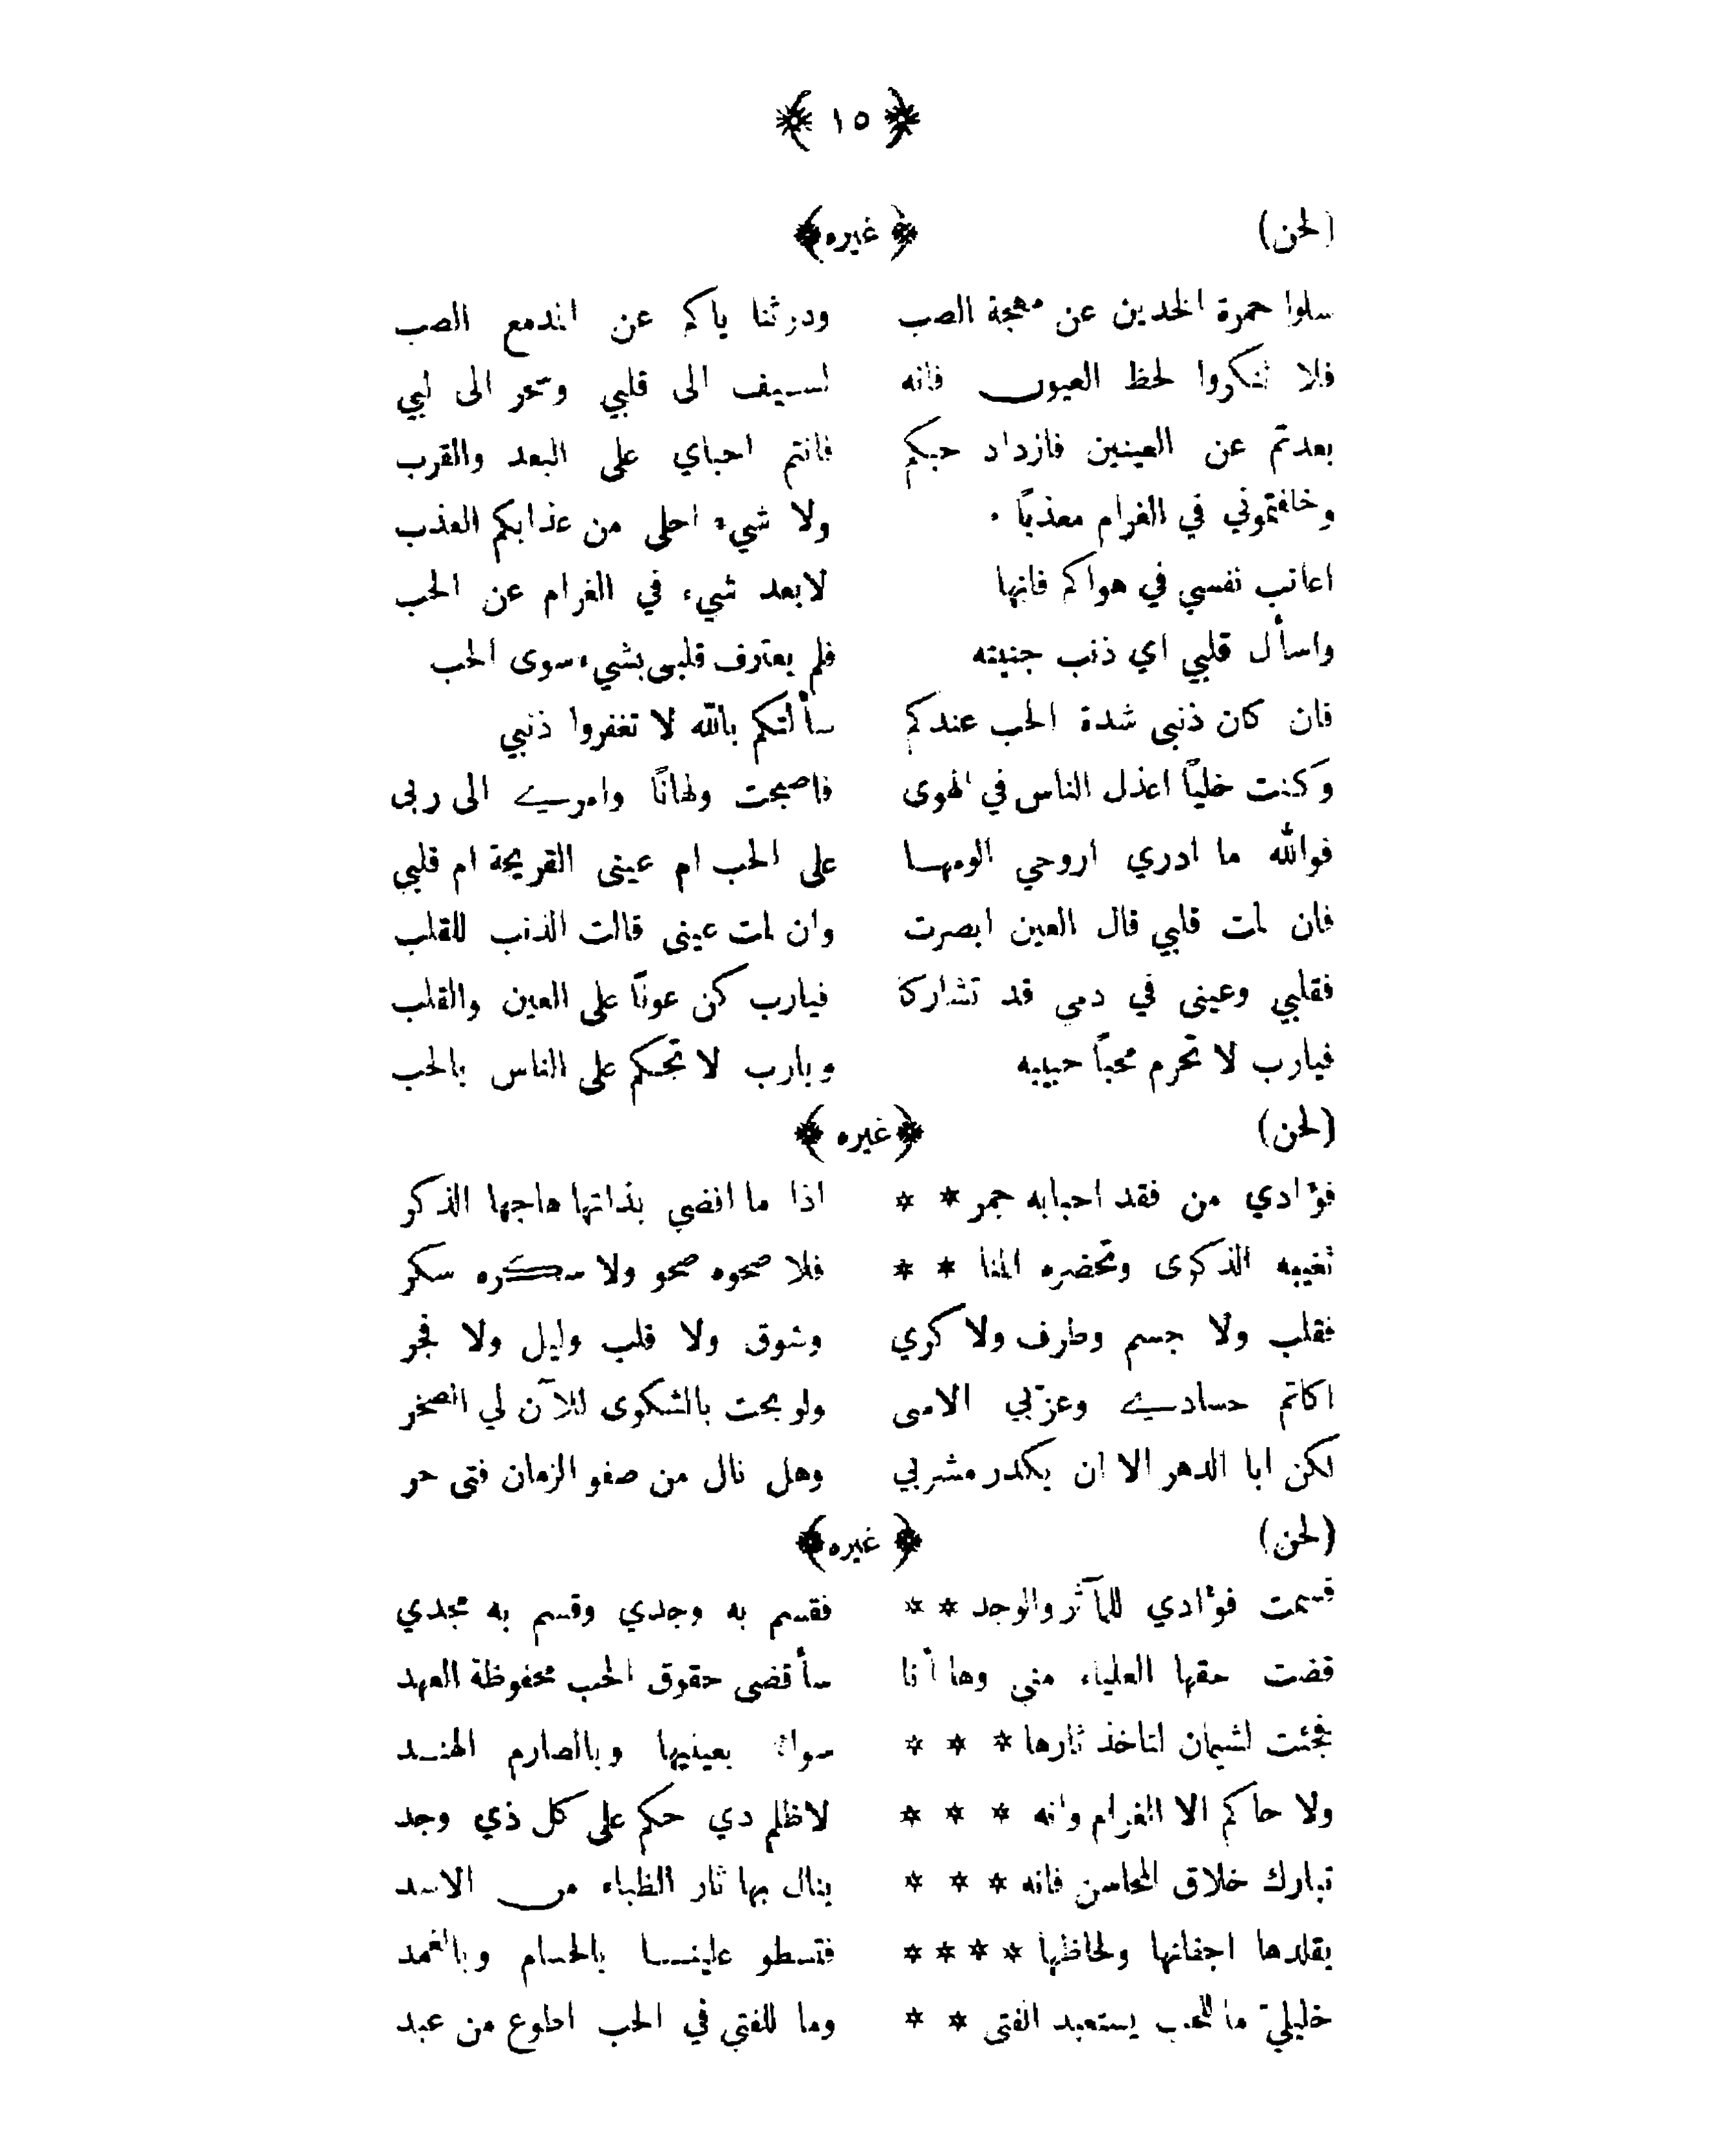 ﴿ ١٥ ﴾
(لحن) ﴿ غيره ﴾
سلوا حمرة الخدين عن مهجة الصب ودر ثنا ياكم عن المدمع الصب
فلا تنكروا لحظ العيون فانه لسيف الى قلبي وسحر الى لبي
بعدتم عن العينين فازداد حبكم فانتم احباي على البعد والقرب
وخلفتموني في الغرام معذباً ولا شيء احلى من عذابكم العذب
اعاتب نفسي في هواكم فانها لابعد شيء في الغرام عن الحب
واسأل قلبي اي ذنب جنيته فلم يعترف قلبي بشيء سوى الحب
فان كان ذنبي شدة الحب عندكم سألتكم بالله لا تغفروا ذنبي
وكنت خلياً اعذل الناس في الهوى فاصبحت ولهاناً وامري الى ربي
فوالله ما ادري اروحي الومها على الحب ام عيني القريحة ام قلبي
فان لمت قلبي قال العين ابصرت وان لمت عيني قالت الذنب للقلب
فقلبي وعيني في دمي قد تشاركا فيارب كن عوناً على العين والقلب
فيارب لا تحرم محباً حبيبه ويارب لا تحكم على الناس بالحب
(لحن) ﴿ غيره ﴾
فؤادي من فقد احبابه جمر * * اذا ما افضي بذاتها هاجها الذكر
تغيبه الذكرى وتحضره المنا * * فلا صحوه صحو ولا سكره سكر
فقلب ولا جسم وطرف ولا كري وشوق ولا قلب وليل ولا فجر
اكاتم حسادي وعزّ بي الاسى ولو بحت بالشكوى للآن لي الصخر
لكن ابا الدهر الا ان يكدر مشربي وهل نال من صفو الزمان فتى حر
(لحن) ﴿ غيره ﴾
قسمت فؤادي للمآثر والوجد * * فقسم به وجدي وقسم به مجدي
قضت حقها العلياء مني وها أنا سأقضي حقوق الحب محفوظة العهد
فجئت لشيمان لتاخذ ثارها * * * سواءً بعينيها وبالصارم الهند
ولا حاكم الا الغرام وانه * * * لاظلم دي حكم على كل ذي وجد
تبارك خلاق المحاسن فانه * * * ينال بها ثار الظباء من الاسد
يقلدها اجفانها ولحاظها * * * * فتسطو علينا بالحسام وبالغمد
خليليّ ما للحب يستعبد الفتى * * وما للفتى في الحب اطوع من عبد